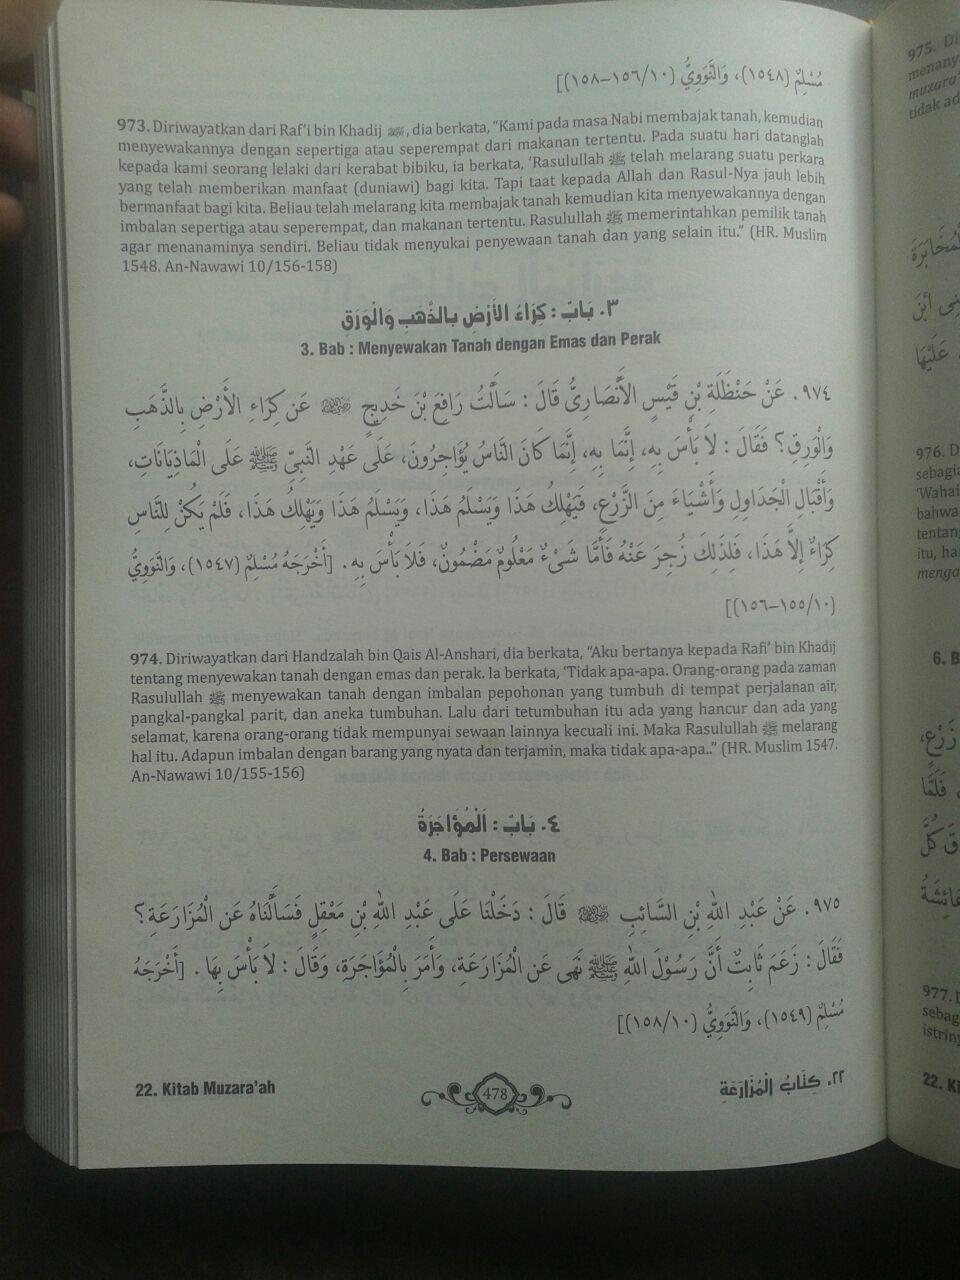 مُسْلِمٌ (١٥٤٨)، وَالنَّوَوِيُّ (١٥٦/١٠-١٥٨)]
973. Diriwayatkan dari Raf'i bin Khadij ﷺ, dia berkata, "Kami pada masa Nabi membajak tanah, kemudian
menyewakannya dengan sepertiga atau seperempat dari makanan tertentu. Pada suatu hari datanglah
kepada kami seorang lelaki dari kerabat bibiku, ia berkata, 'Rasulullah ﷺ telah melarang suatu perkara
yang telah memberikan manfaat (duniawi) bagi kita. Tapi taat kepada Allah dan Rasul-Nya jauh lebih
bermanfaat bagi kita. Beliau telah melarang kita membajak tanah kemudian kita menyewakannya dengan
imbalan sepertiga atau seperempat, dan makanan tertentu. Rasulullah ﷺ memerintahkan pemilik tanah
agar menanaminya sendiri. Beliau tidak menyukai penyewaan tanah dan yang selain itu." (HR. Muslim
1548. An-Nawawi 10/156-158)
٣. بَابٌ : كِرَاءُ الأَرْضِ بِالذَّهَبِ وَالْوَرَقِ
3. Bab : Menyewakan Tanah dengan Emas dan Perak
٩٧٤. عَنْ حَنْظَلَةَ بْنِ قَيْسٍ الأَنْصَارِىُّ قَالَ : سَأَلْتُ رَافِعَ بْنَ خَدِيجٍ ﷺ عَنْ كِرَاءِ الأَرْضِ بِالذَّهَبِ
وَالْوَرِقِ؟ فَقَالَ : لاَ بَأْسَ بِهِ، إِنَّمَا بِهِ، إِنَّمَا كَانَ النَّاسُ يُؤَاجِرُونَ، عَلَى عَهْدِ النَّبِيِّ ﷺ عَلَى الْمَاذِيَانَاتِ،
وَأَقْبَالِ الْجَدَاوِلِ وَأَشْيَاءَ مِنَ الزَّرْعِ، فَيَهْلِكُ هَذَا وَيَسْلَمُ هَذَا، وَيَسْلَمُ هَذَا وَيَهْلِكُ هَذَا، فَلَمْ يَكُنْ لِلنَّاسِ
كِرَاءٌ إِلاَّ هَذَا، فَلِذَلِكَ زُجِرَ عَنْهُ فَأَمَّا شَىْءٌ مَعْلُومٌ مَضْمُونٌ، فَلاَ بَأْسَ بِهِ. [أَخْرَجَهُ مُسْلِمٌ (١٥٤٧)، وَالنَّوَوِيُّ
(١٥٥/١٠-١٥٦)]
974. Diriwayatkan dari Handzalah bin Qais Al-Anshari, dia berkata, "Aku bertanya kepada Rafi' bin Khadij
tentang menyewakan tanah dengan emas dan perak. Ia berkata, 'Tidak apa-apa. Orang-orang pada zaman
Rasulullah ﷺ menyewakan tanah dengan imbalan pepohonan yang tumbuh di tempat perjalanan air,
pangkal-pangkal parit, dan aneka tumbuhan. Lalu dari tetumbuhan itu ada yang hancur dan ada yang
selamat, karena orang-orang tidak mempunyai sewaan lainnya kecuali ini. Maka Rasulullah ﷺ melarang
hal itu. Adapun imbalan dengan barang yang nyata dan terjamin, maka tidak apa-apa.." (HR. Muslim 1547.
An-Nawawi 10/155-156)
٤. بَابٌ : اَلْمُؤَاجَرَةُ
4. Bab : Persewaan
٩٧٥. عَنْ عَبْدِ اللهِ بْنِ السَّائِبِ ﷺ قَالَ : دَخَلْنَا عَلَى عَبْدِ اللهِ بْنِ مَعْقِلٍ فَسَأَلْنَاهُ عَنِ الْمُزَارَعَةِ؟
فَقَالَ : زَعَمَ ثَابِتٌ أَنَّ رَسُوْلَ اللهِ ﷺ نَهَى عَنِ الْمُزَارَعَةِ، وَأَمَرَ بِالْمُؤَاجَرَةِ، وَقَالَ : لاَ بَأْسَ بِهَا. [أَخْرَجَهُ
مُسْلِمٌ (١٥٤٩)، وَالنَّوَوِيُّ (١٥٨/١٠)]
22. Kitab Muzara'ah
478
٢٢. كِتَابُ الْمُزَارَعَةِ
975. Di
menanya
muzara'
tidak ad
976. D
sebagia
'Wahai
bahwa
tentang
itu, ha
menga
6. B
977. D
sebag
istriny
22. Ki